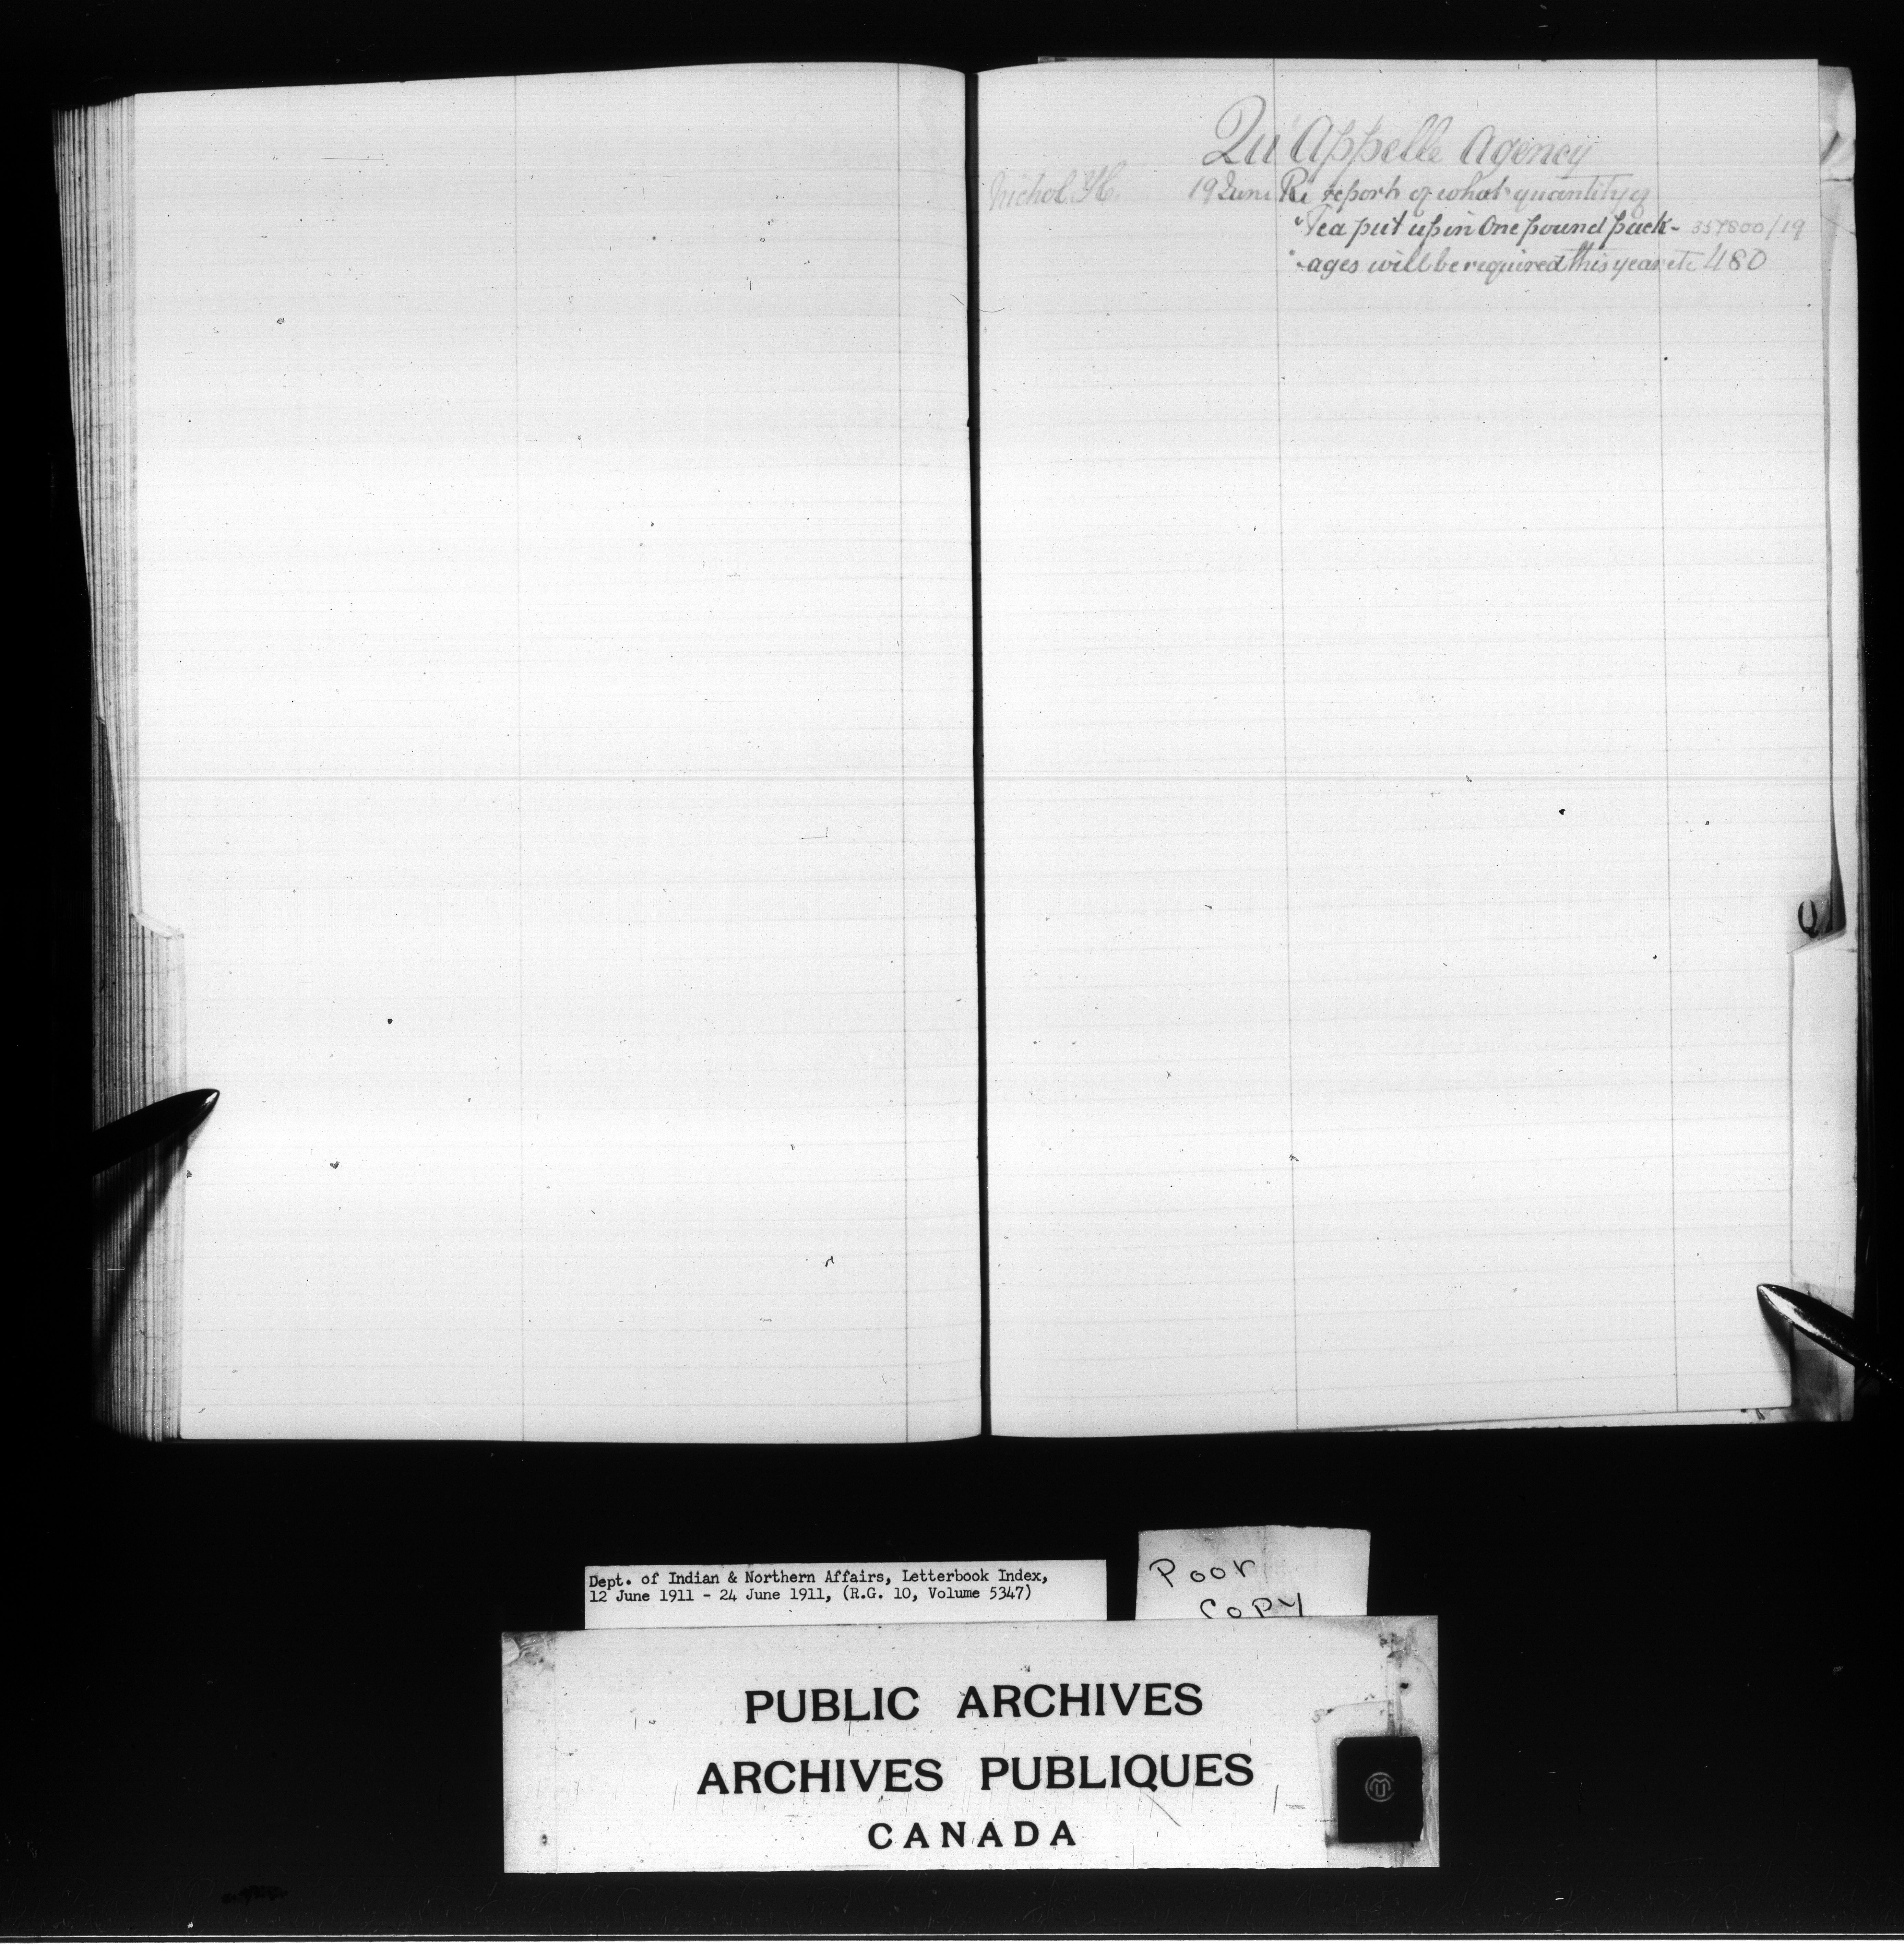 Qu'Appelle Agency
Nichol H. 19 June Re report of what quantity of
Tea put up in One pound pack- 357800/19
-ages will be required this year etc 480
Q
Dept. of Indian & Northern Affairs, Letterbook Index,
12 June 1911 - 24 June 1911, (R.G. 10, Volume 5347)
Poor
Copy
PUBLIC ARCHIVES
ARCHIVES PUBLIQUES
CANADA